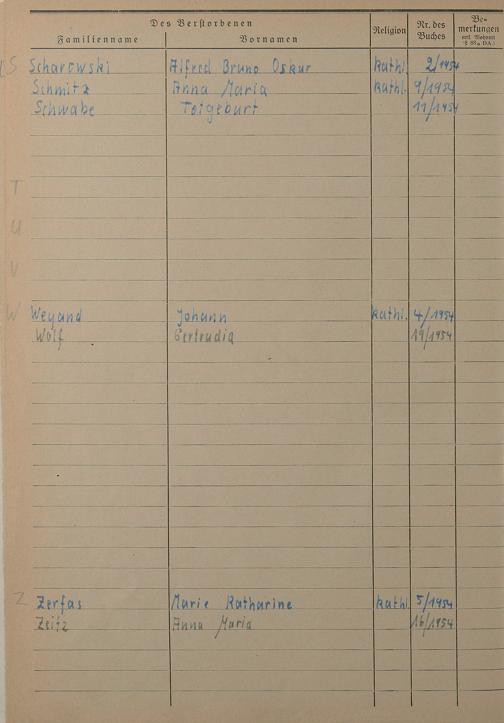 Des Verstorbenen
Familienname Vornamen Religion Nr. des Buches Bemerkungen
S Scharowski Alfred Bruno Oskar kathl. 2/1954
Schmitz Anna Maria kathl. 9/1954
Schwabe Totgeburt 11/1954
T
U
V
W Weyand Johann kathl. 4/1954
Wolf Gertrudia 19/1954
Z Zerfas Marie Katharine kathl 5/1954
Zeitz Anna Maria 16/1954